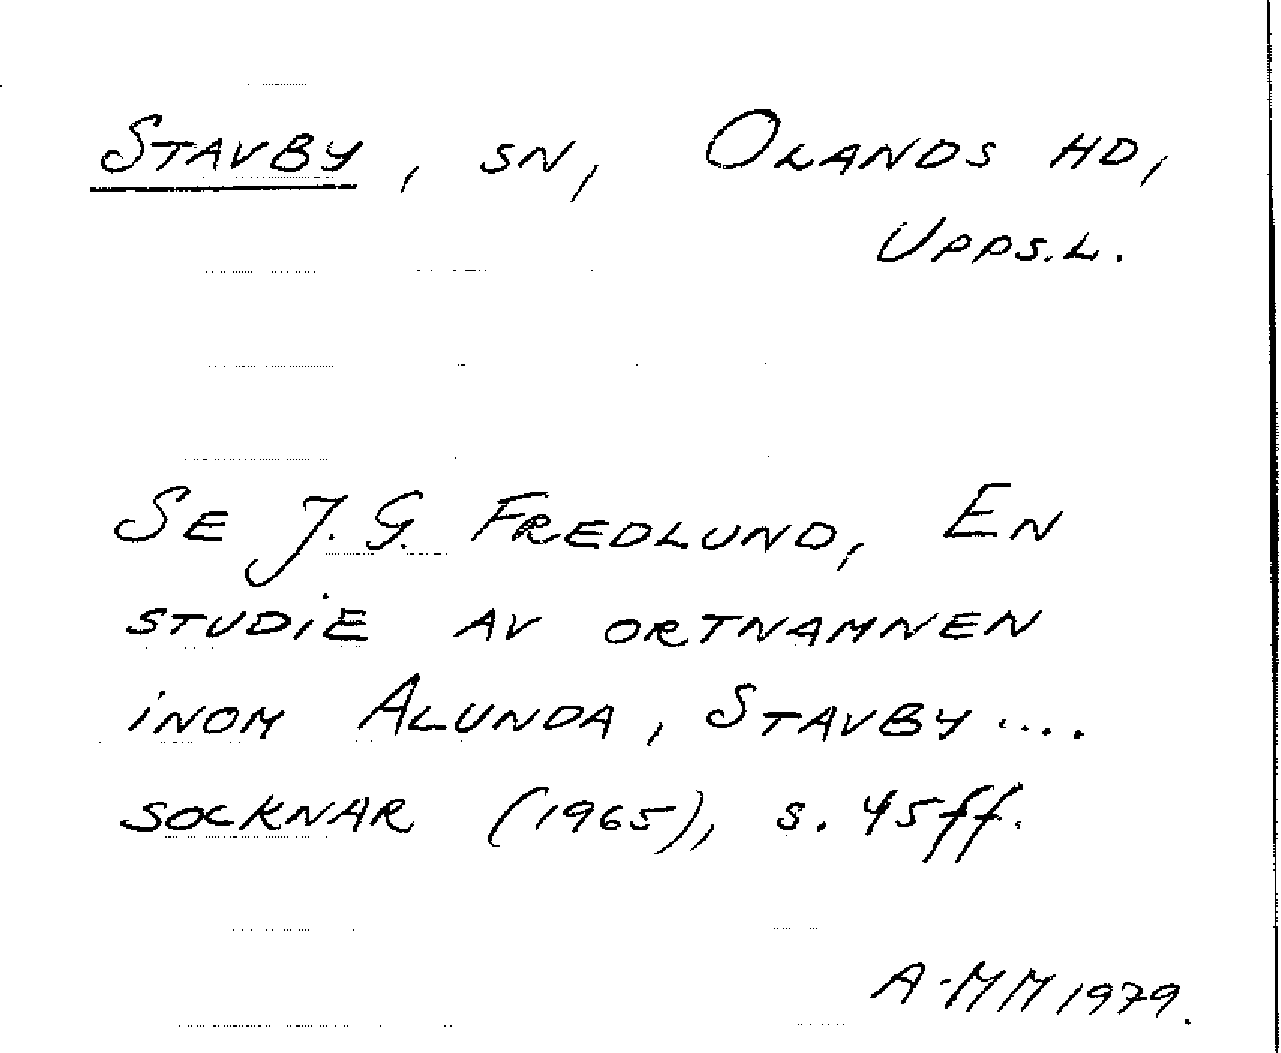 STAVBY, SN, OLANDS HD,
UPPS.L.
SE J.G. FREDLUND, EN
STUDIE AV ORTNAMNEN
INOM ALUNDA, STAVBY....
SOCKNAR (1965), S. 45ff.
A-MM 1979.